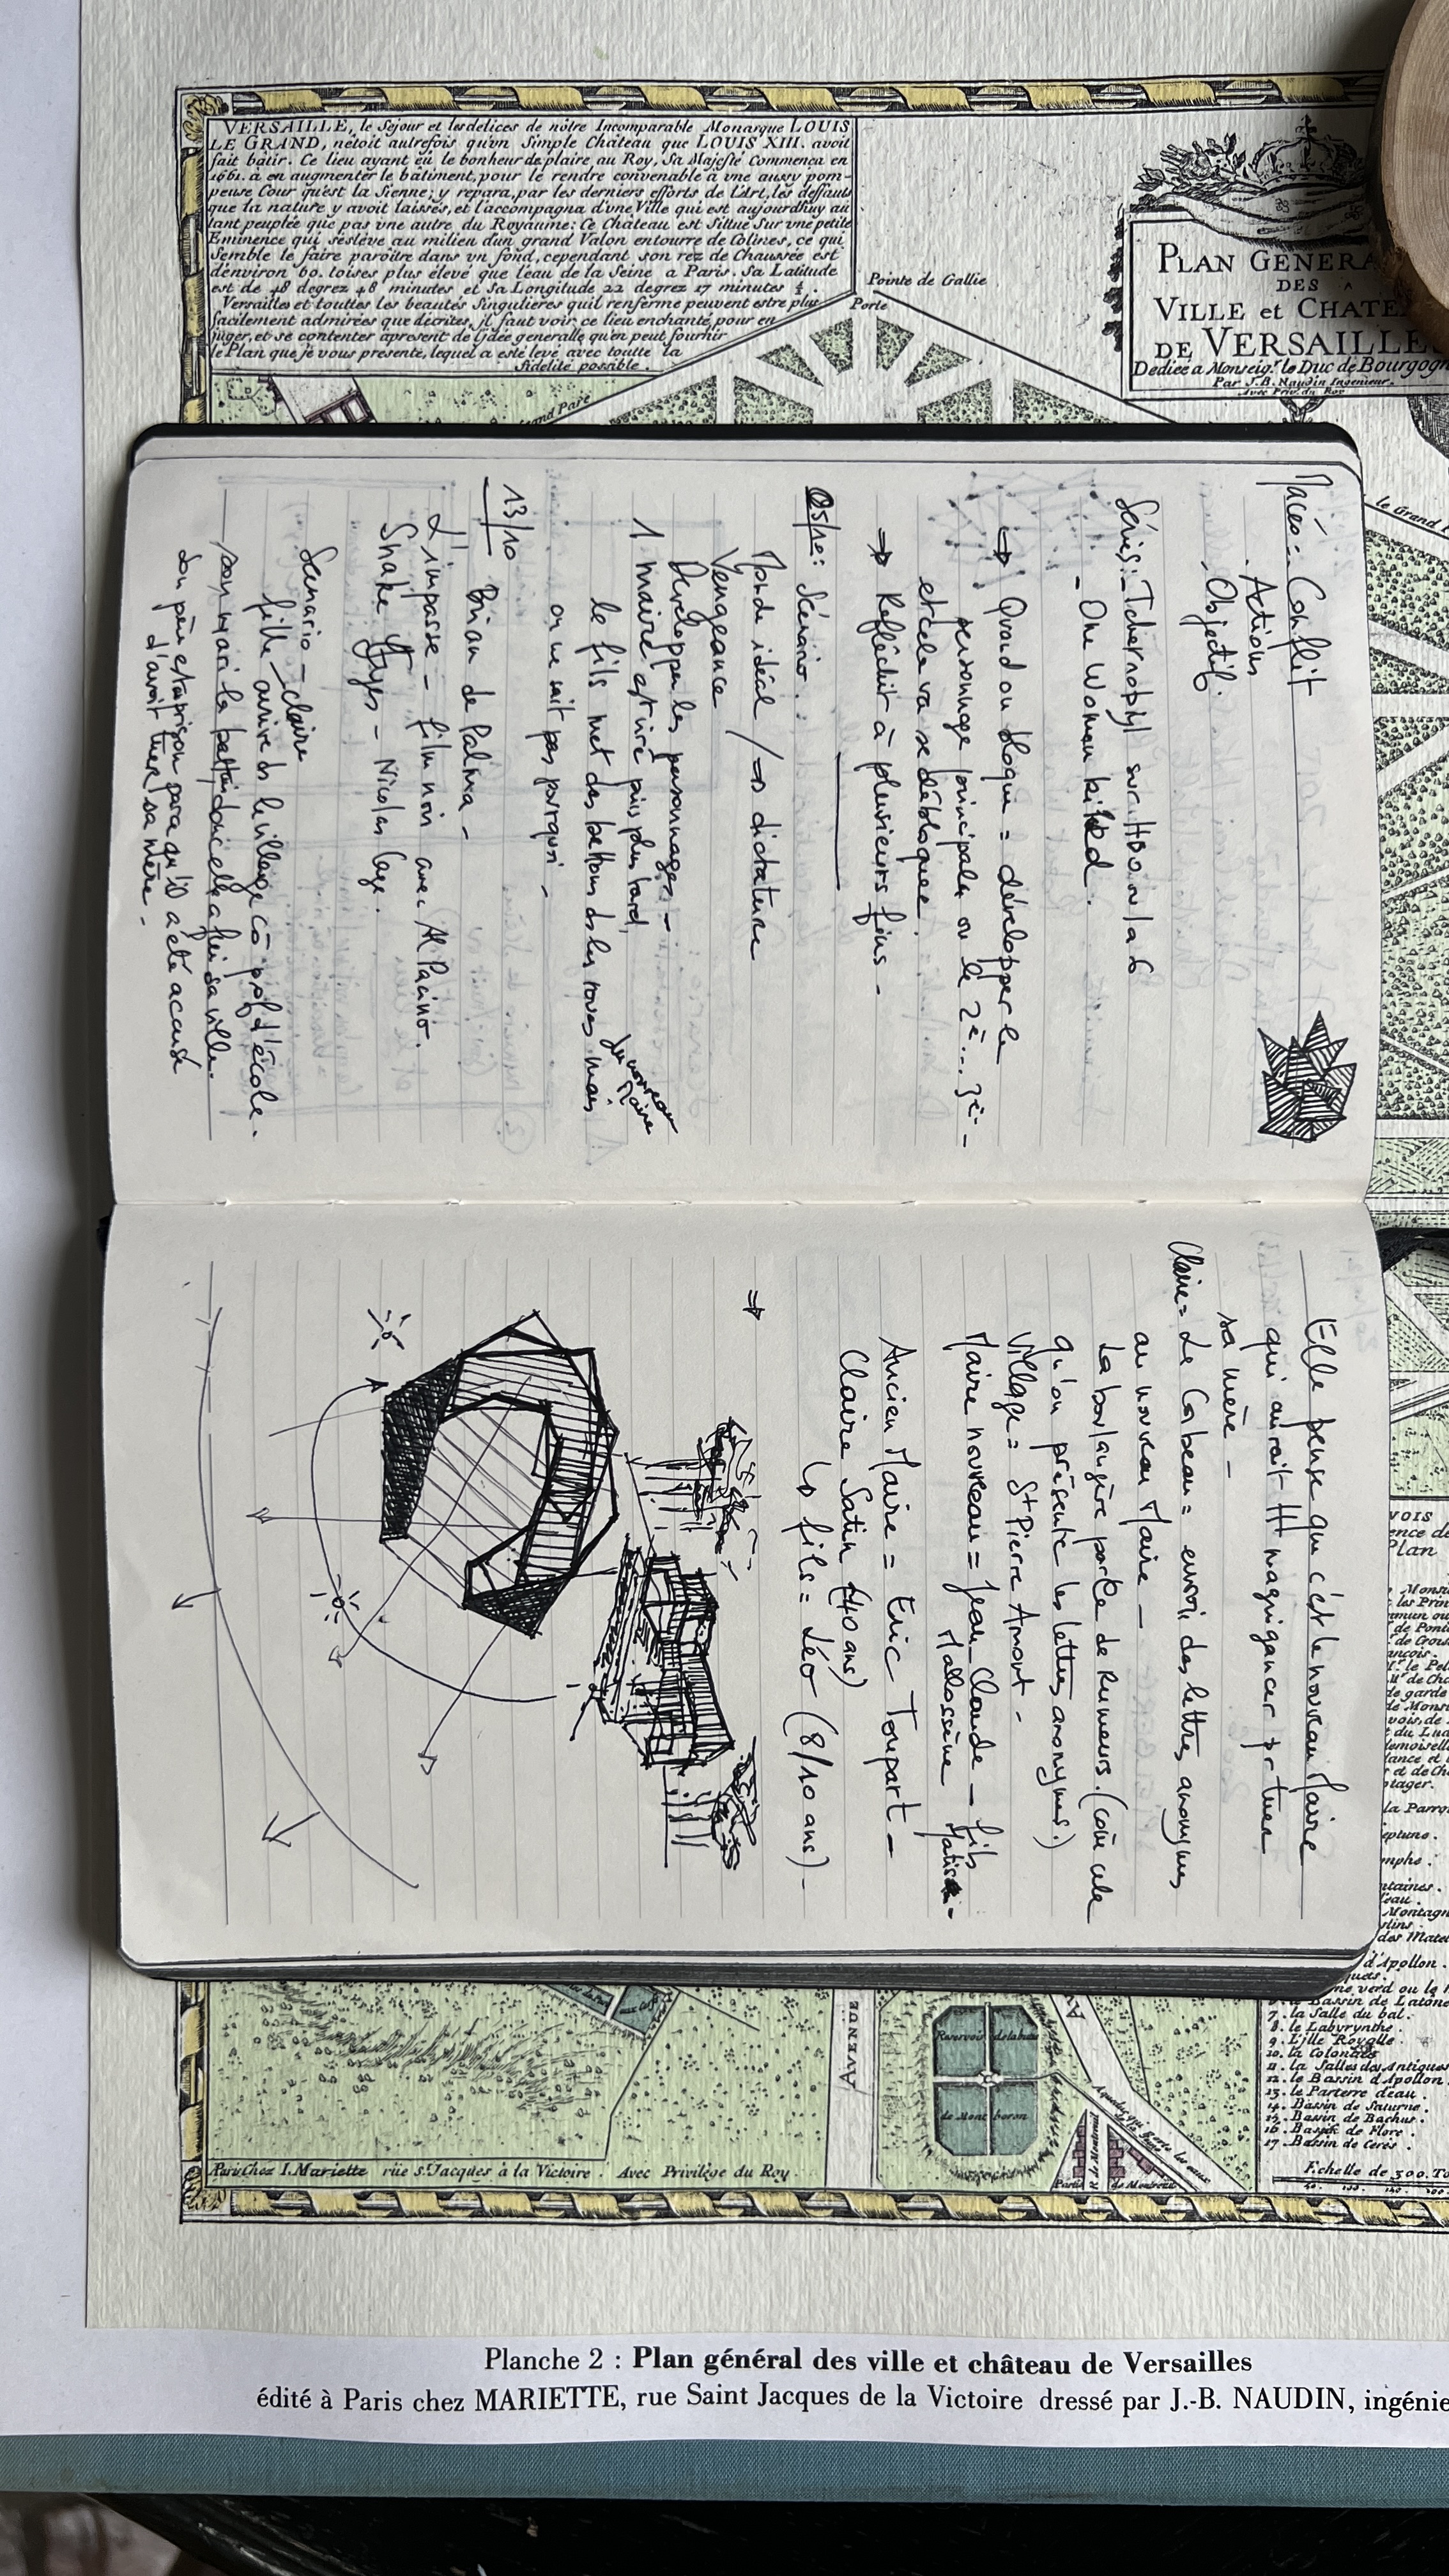 VERSAILLE, le Sejour et les delices de nôtre Incomparable Monarque LOUIS
LE GRAND, nétoit autrefois qu'vn Simple Château que LOUIS XIII. avoit
fait bâtir. Ce lieu ayant eu le bonheur de plaire au Roy, Sa Majesté Commença en
1661. à en augmenter le bâtiment, pour le rendre convenable à vne aussy pom-
peuse Cour qu'est la Sienne; y repara, par les derniers efforts de l'Art, les deffauts
que la nature y avoit laissés, et l'accompagna d'vne Ville qui est aujourdhuy au
tant peuplée que pas vne autre du Royaume: Ce Château est Sittue Sur vne petite
Eminence qui s'esléve au milieu d'un grand Valon entourre de Colines, ce qui
Semble le faire paroitre dans vn fond, cependant son rez de Chaussée est
d'environ 60. toises plus élevé que l'eau de la Seine a Paris. Sa Latitude
est de 48 degrez 48 minutes et Sa Longitude 22 degrez 17 minutes
Versailles et touttes les beautés Singulieres quil renferme peuvent estre plus
facilement admirées que décrites, jl faut voir ce lieu enchanté pour en
juger, et se contenter apresent de l'jdée generalle qu'en peut fournir
le Plan que je vous presente, lequel a esté levé avec toutte la
fidelité possible.
Pointe de Gallie
Porte
PLAN GENERA
DES
VILLE et CHATE
DE VERSAILLE
Dediée a Monseigr. le Duc de Bourgogn
Par J.B. Naudin Ingenieur.
Avec Priv. du Roy
Grand Parc
le Grand
Macéo : Conflit
. Actions
. Objectif.
Séries : - Tchernobyl sur HBO ou la 6
- One Woman killed.
⇒ Quand on bloque = développer le
personnage principal ou le 2è... 3è -
et cela va se débloquer.
⇒ Réfléchir à plusieurs fins -
05/10 : Scénario :
Monde idéal / ⇒ dictature
Vengeance
Développer les personnages -
1 maire est viré puis plus tard,
du nouveau
Maire
le fils met des bettons ds les roues mais
on ne sait pas pourquoi -
13/10
Brian de Palma -
L'impasse - film noir avec Al Pacino.
Snake Eyes - Nicolas Cage.
Scénario - Claire
fille arrive ds le village co prof d'école.
son mari la battait donc elle a fui sa ville.
Son père est en prison parce qu'il a été accusé
d'avoir tuer sa mère -
Elle pense que c'est le nouveau Maire
qui aurait magnigancer pr tuer
sa mère -
Claire = Le Corbeau = envoi des lettres anonymes
au nouveau Maire -
La boulangère parle de Rumeurs. (com cela
qu'on présente les lettres anonymes.)
Village = St Pierre Amont -
Maire nouveau = Jean-Claude - fils
Malossène Matis -
Ancien Maire = Eric Toupart -
Claire Satin (40 ans)
↳ fils = Léo (8/10 ans) -
⇒
AVENUE
Reservoir de la bute
de Mont boron
Paris Chez I. Mariette rüe s.t Jacques à la Victoire. Avec Privilége du Roy.
7. la Salle du bal.
8. le Labyrynthe.
9. L'Ille Royalle
10. la Colonade
11. la Salles des Antiques
12. le Bassin d'Apollon
13. le Parterre d'eau.
14. Bassin de Saturne.
15. Bassin de Bachus.
16. Bassin de Flore.
17. Bassin de Ceres.
Echelle de 300. To
Planche 2 : Plan général des ville et château de Versailles
édité à Paris chez MARIETTE, rue Saint Jacques de la Victoire dressé par J.-B. NAUDIN, ingénie